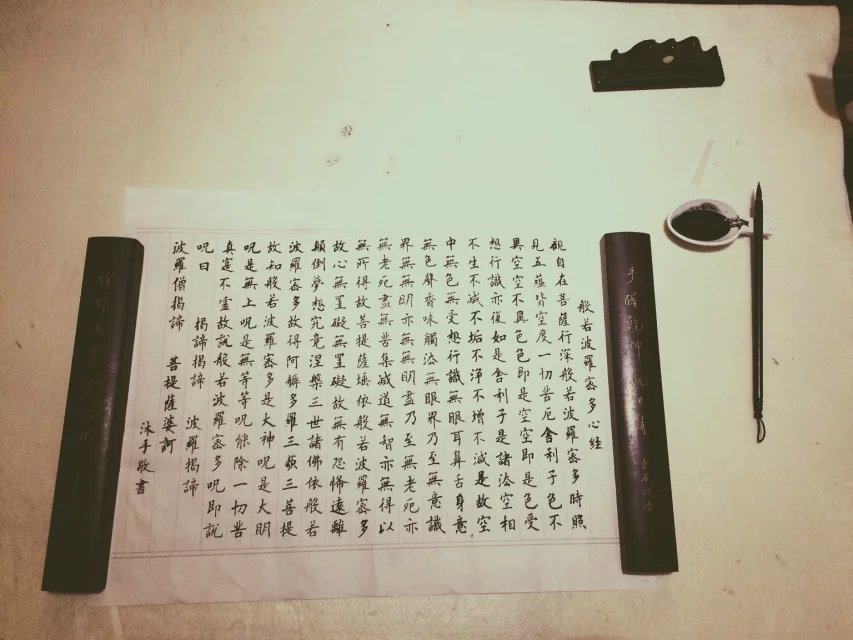 般若波羅密多心經
觀自在菩薩行深般若波羅密多時照
見五蘊皆空度一切苦厄舍利子色不
異空空不異色色即是空空即是色受
想行識亦復如是舍利子是諸法空相
不生不滅不垢不淨不增不減是故空
中無色無受想行識無眼耳鼻舌身意
無色聲香味觸法無眼界乃至無意識
界無無明亦無無明盡乃至無老死亦
無老死盡無苦集滅道無智亦無得以
無所得故菩提薩埵依般若波羅密多
故心無罣礙無罣礙故無有恐怖遠離
顛倒夢想究竟涅槃三世諸佛依般若
波羅密多故得阿耨多羅三藐三菩提
故知般若波羅密多是大神呪是大明
呪是無上呪是無等等呪能除一切苦
真實不虛故說般若波羅密多呪即說
呪曰 揭諦揭諦 波羅揭諦
波羅僧揭諦 菩提薩婆訶
沐手敬書